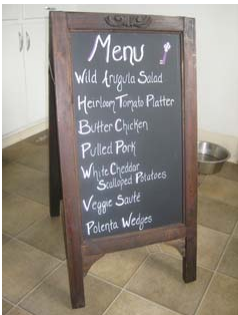 Menu
Wild Arugula Salad
Heirloom Tomato Platter
Butter Chicken
Pulled Pork
White Cheddar
Scalloped Potatoes
Veggie Sauté
Polenta Wedges